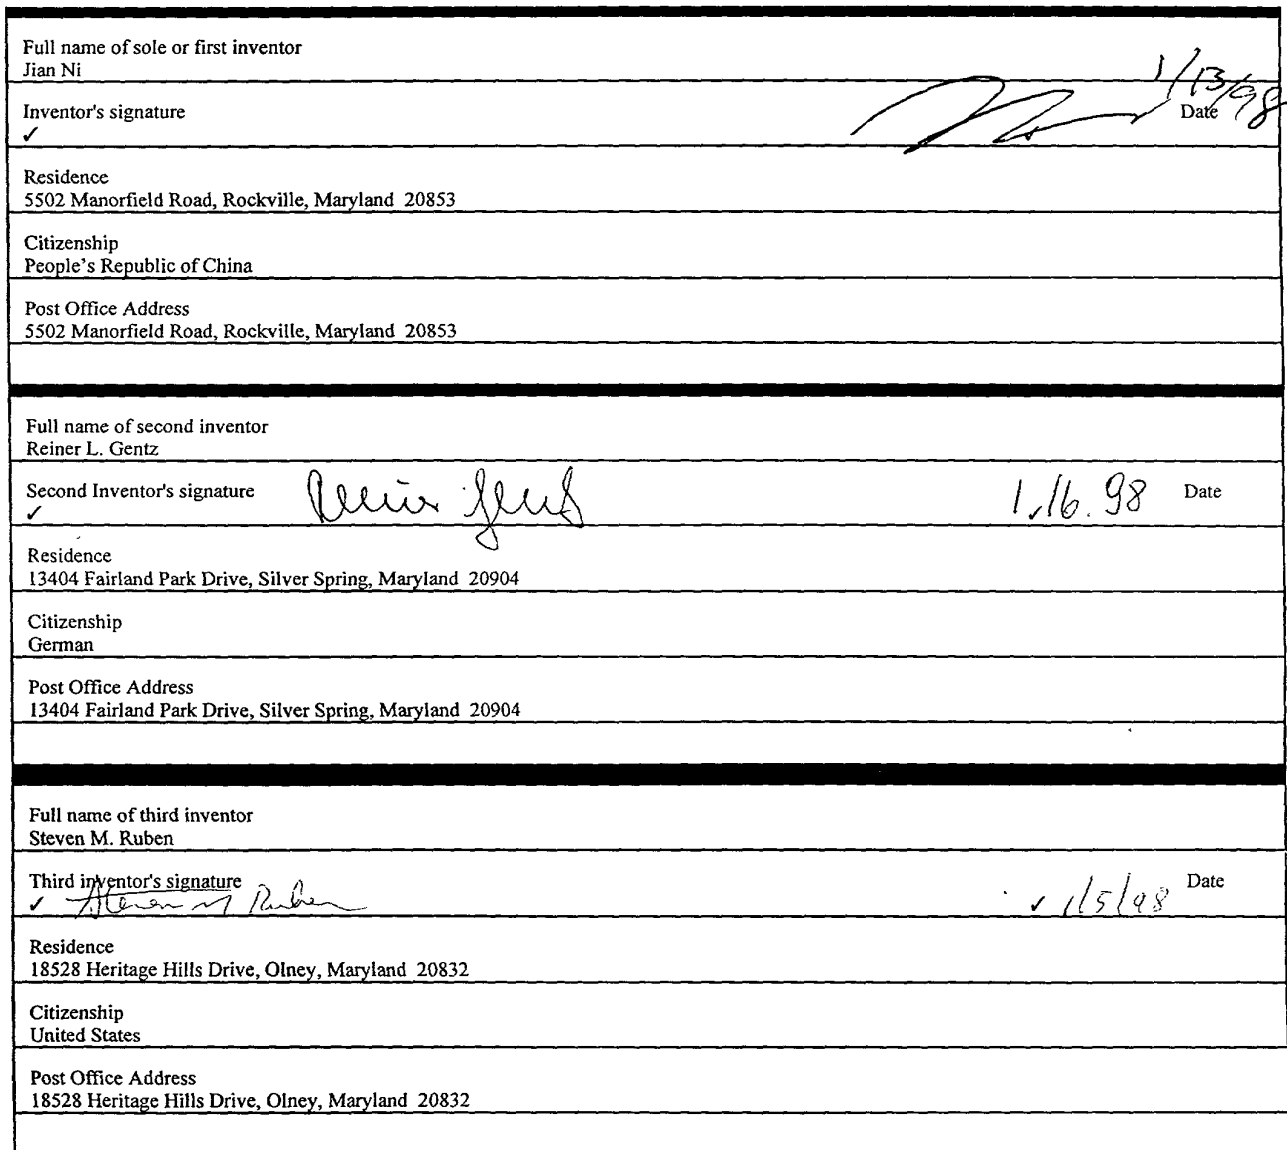 Full name of sole or first inventor
Jian Ni
1/13/98
Inventor's signature
Date
✓
Residence
5502 Manorfield Road, Rockville, Maryland 20853
Citizenship
People's Republic of China
Post Office Address
5502 Manorfield Road, Rockville, Maryland 20853
Full name of second inventor
Reiner L. Gentz
Second Inventor's signature Reiner Gentz 1.16.98 Date
✓
Residence
13404 Fairland Park Drive, Silver Spring, Maryland 20904
Citizenship
German
Post Office Address
13404 Fairland Park Drive, Silver Spring, Maryland 20904
Full name of third inventor
Steven M. Ruben
Third inventor's signature Date
✓ Steven M Ruben ✓ 1/5/98
Residence
18528 Heritage Hills Drive, Olney, Maryland 20832
Citizenship
United States
Post Office Address
18528 Heritage Hills Drive, Olney, Maryland 20832